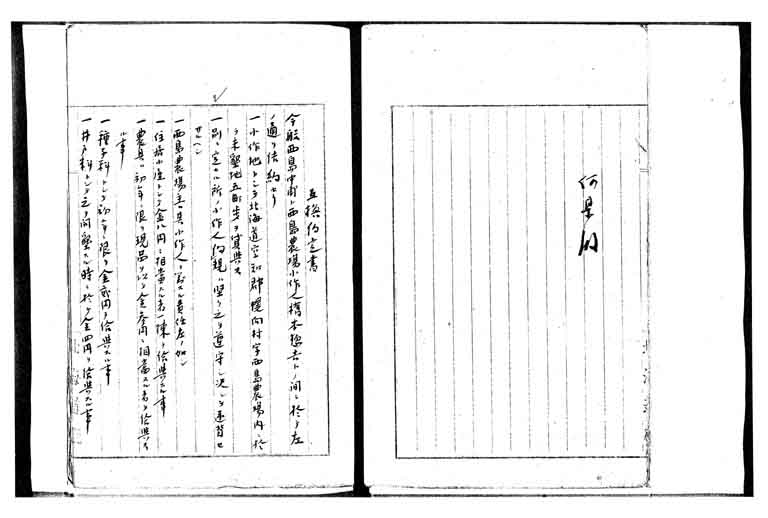 互換約定書
今般西島 ト西島農場小作人橋本 トノ間ニ於テ左
ノ通リ契約セリ
一小作地トシテ北海道空知郡幌向村字西島農場内ニ於
テ未墾地五町歩ヲ貸与ス
一別ニ定ムル所ノ小作人約規ハ堅ク之ヲ遵守シ決シテ違背セ
サルヘシ
一西島農場主ハ其小作人ニ対スル責任左ノ如シ
一住居小屋トシテ金八円ニ相当スル者一棟ヲ給与スル事
一農具ハ初年ニ限リ現品ヲ以テ金 円ニ相当スル者ヲ給与ス
ル事
一種子料トシテ初年ニ限リ金弐円ヲ給与スル事
一井戸料トシテ之ヲ開墾スル時ニ於テ金四円ヲ給与スル事